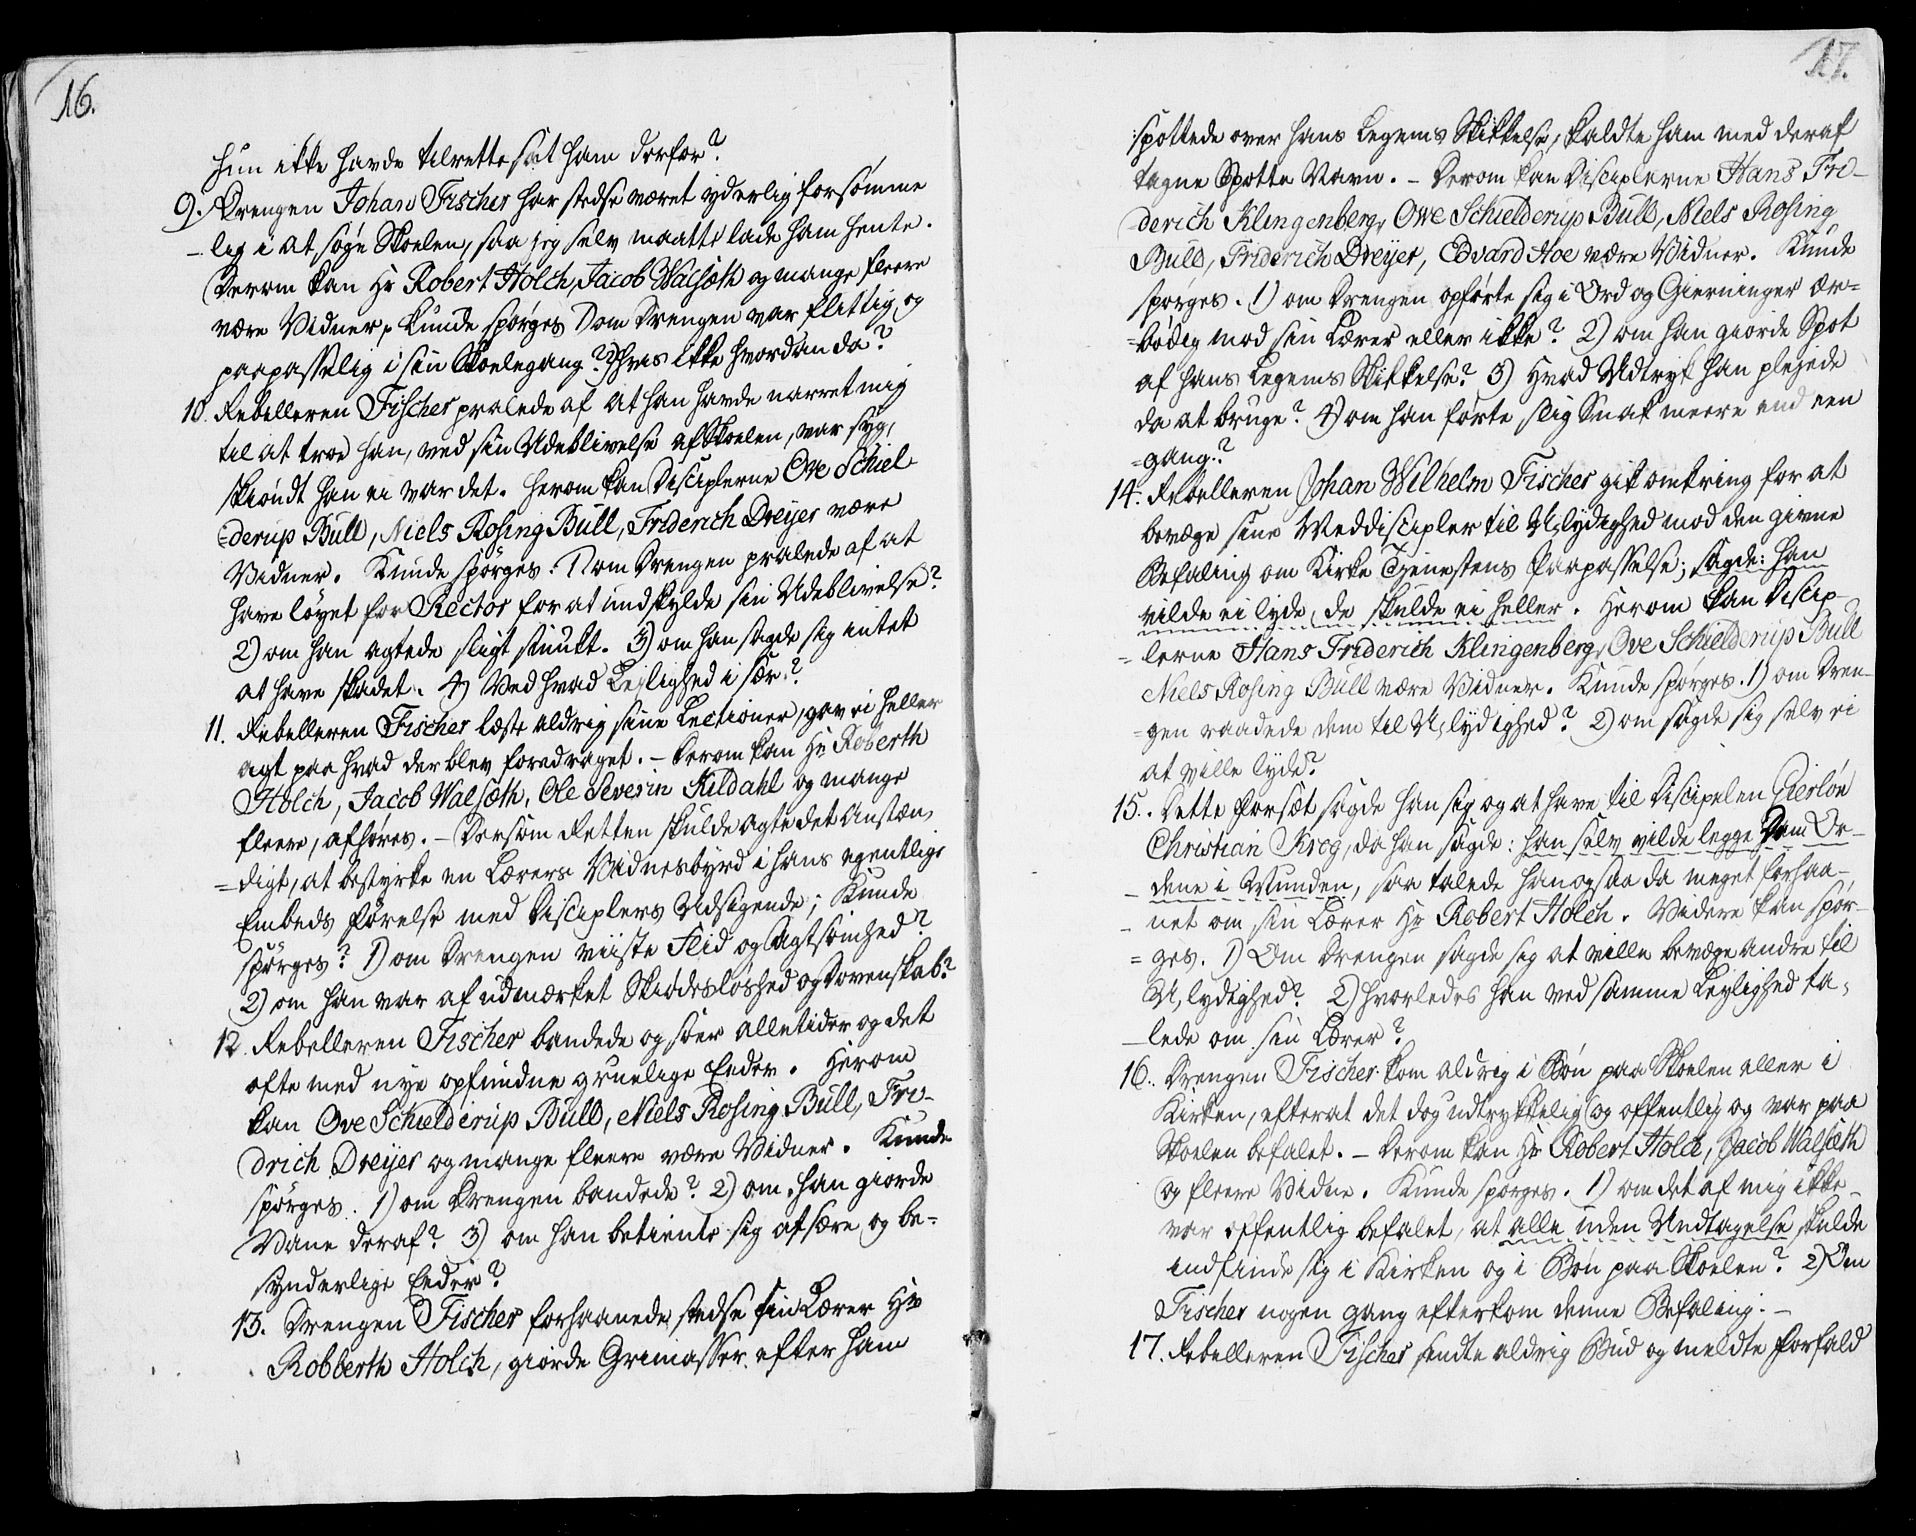 16.
hun ikke havde tilrettesat ham derfor?
9. Drengen Johan Fischer har stedse været yderlig forsømme
-lig i at søge Skoelen, saa jeg selv maatte lade ham hente.
Derom kan Hr Robert Holch, Jacob Walsæth og mange fleere
være Vidner, kunde spørges 1) om Drengen var flittig og
paapasselig i sin Skoelegang? 2) hvis ikke hvordan da?
10. Rebelleren Fischer pralede af at han havde narret mig
til at troe han, ved sin Udeblivelse af Skoelen, var syg,
skiøndt han ei var det. Herom kan Disciplerne Ove Schiel
=derup Bull, Niels Rosing Bull, Friderich Dreyer være
Vidner. Kunde spørges. 1) om Drengen pralede af at
have løyet for Rector for at undskylde sin Udeblivelse?
2) om han agtede sligt smukt. 3) om han sagde sig intet
at have skadet. 4) Ved hvad Leylighed i sær?
11. Rebelleren Fischer læste aldrig sine Lectioner, gav ei heller
agt paa hvad der blev foredraget. - Derom kan Hr Roberth
Holch, Jacob Walsæth, Ole Severin Kildahl og mange
fleere, afhøres. - Dersom Retten skulde agte det Anstæn,
=digt, at bestyrke en Lærers Vidnesbyrd i hans egentlige
Embeds førelse med Disciplers Udsigende; Kunde
spørges? 1) om Drengen viiste Flid og Agtsomhed?
2) om han var af udmærket Skiødesløshed og Dovenskab?
12. Rebelleren Fischer bandede og soer alletider og det
ofte med nye opfundne gruelige Eeder. Herom
kan Ove Schielderup Bull, Niels Rosing Bull, Fri-
drich Dreyer og mange fleere være Vidner. Kunde
spørges. 1) om Drengen bandede? 2) om han giorde
Vane deraf? 3) om han betiente sig af sære og be=
synderlige Eeder?
13. Drengen Fischer forhaanede stedse sin Lærer Hr
Robberth Holch, giorde Grimasser efter ham
17.
spottede over hans Legems Skikkelse, kaldte ham med deraf
tagne Spotte Navn. - Derom kan Disciplerne Hans Fri-
derich Klingenberg, Owe Schielderup Bull, Niels Rosing
Bull, Friderich Dreyer, Edvard Hoe være Vidner. Kunde
spørges. 1) om Drengen opførte sig i Ord og Gierninger ær=
=bødig mod sin Lærer eller ikke? 2) om han giorde Spot
af hans Legems Skikkelse? 3) Hvad Udtryk han plejede
da at bruge? 4) om han førte slig Snak meere end een
=gang?
14. Rebelleren Johan Wilhelm Fischer gik omkring for at
bevæge sine Meddiscipler til U,lydighed mod den givne
Befaling om Kirke Tjenestens Paapasselse; sagde: han
vilde ei lyde, de skulde ei heller. Herom kan Discip-
=lerne Hans Friderich Klingenberg, Ove Schielderup Bull
Niels Rosing Bull være Vidner. Kunde spørges. 1) om Dren-
=gen raadede dem til U,lydighed? 2) om sagde sig selv ei
at ville lyde?
15. Dette forsæt sagde han sig og at have til Discipelen Gierløv
Christian Krog, da han sagde: han selv vilde legge Dem Or-
-dene i Munden, saa talede han ogsaa da meget forhaa-
-net om sin Lærer Hr Robert Holch. Videre kan spør-
=ges. 1) Om Drengen sagde sig at ville bevæge andre til
U,lydighed? 2) hvorledes han ved samme Leylighed ta,
-lede om sin Lærer?
16. Drengen Fischer kom aldrig i Bøn paa Skoelen eller i
Kirken, efterat det dog udtrykkelig og offentlig og var paa
Skoelen befalet. - Derom kan Hr Robert Holch, Jacob Walsæth
og fleere Vidne. Kunde spørges. 1) om det af mig ikke
var offentlig befalet, at alle uden Undtagelse skulde
indfinde sig i Kirken og i Bøn paa Skoelen? 2) Om
Fischer nogen gang efterkom denne Befaling. -
17. Rebelleren Fischer sendte aldrig Bud og meldte forfald